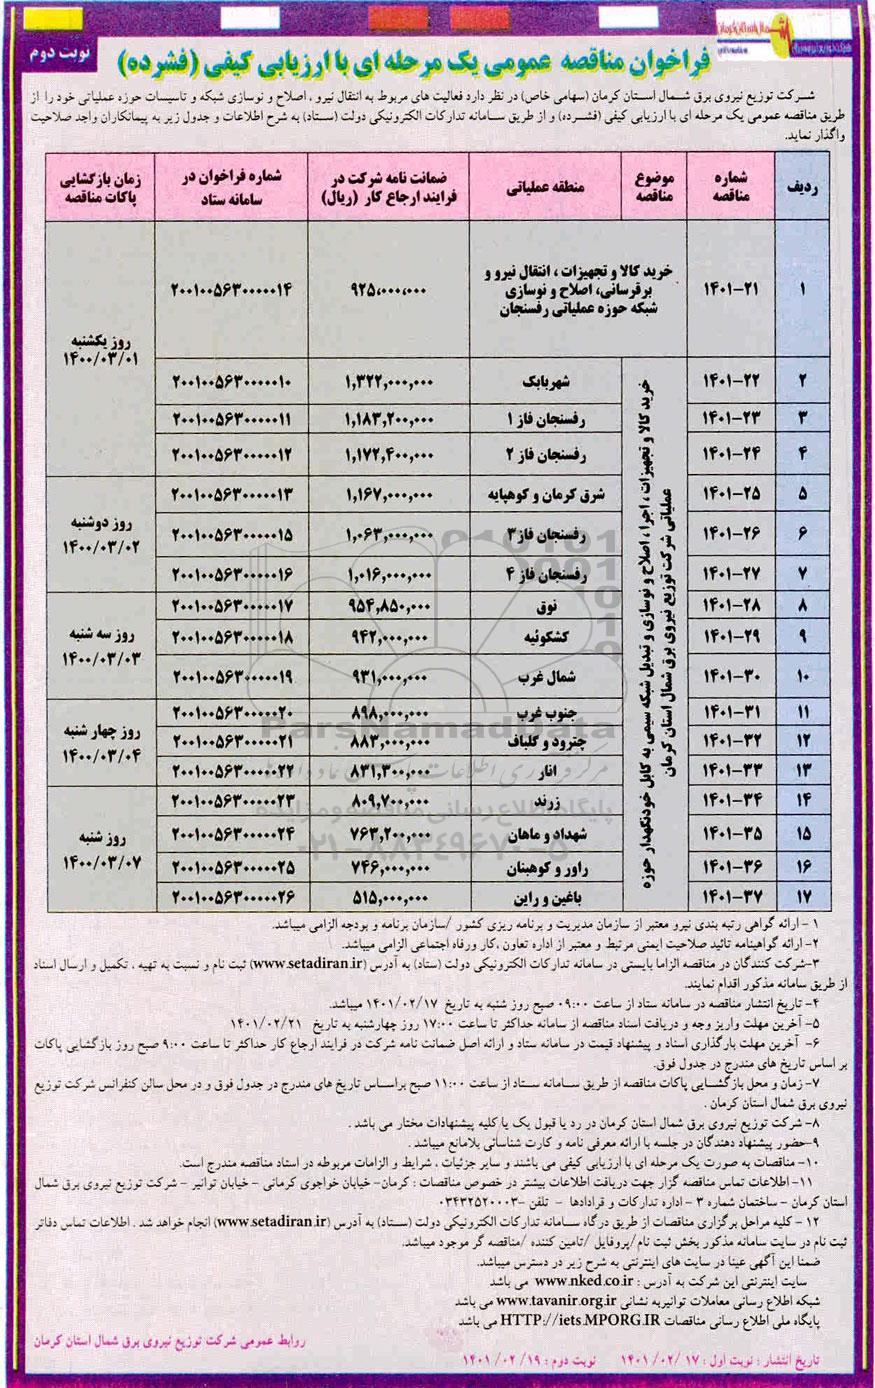 نوبت دوم
فراخوان مناقصه عمومی یک مرحله ای با ارزیابی کیفی (فشرده)
شرکت توزیع نیروی برق شمال استان کرمان (سهامی خاص) در نظر دارد فعالیت های مربوط به انتقال نیرو ، اصلاح و نوسازی شبکه و تاسیسات حوزه عملیاتی خود را از
طریق مناقصه عمومی یک مرحله ای با ارزیابی کیفی (فشرده) و از طریق سامانه تدارکات الکترونیکی دولت (ستاد) به شرح اطلاعات و جدول زیر به پیمانکاران واجد صلاحیت
واگذار نماید.
ردیف | شماره مناقصه | موضوع مناقصه | منطقه عملیاتی | ضمانت نامه شرکت در فرایند ارجاع کار (ریال) | شماره فراخوان در سامانه ستاد | زمان بازگشایی پاکات مناقصه
۱ | ۱۴۰۱-۲۱ | خرید کالا و تجهیزات ، انتقال نیرو و برقرسانی، اصلاح و نوسازی شبکه حوزه عملیاتی رفسنجان | ۹۲۵,۰۰۰,۰۰۰ | ۲۰۰۱۰۰۵۶۳۰۰۰۰۰۱۴ | روز یکشنبه ۱۴۰۰/۰۳/۰۱
خرید کالا و تجهیزات ، اجرا ، اصلاح و نوسازی و تبدیل شبکه سیمی به کابل خودنگهدار حوزه
عملیاتی شرکت توزیع نیروی برق شمال استان کرمان
۲ | ۱۴۰۱-۲۲ | شهربابک | ۱,۳۲۲,۰۰۰,۰۰۰ | ۲۰۰۱۰۰۵۶۳۰۰۰۰۰۱۰
۳ | ۱۴۰۱-۲۳ | رفسنجان فاز ۱ | ۱,۱۸۳,۲۰۰,۰۰۰ | ۲۰۰۱۰۰۵۶۳۰۰۰۰۰۱۱
۴ | ۱۴۰۱-۲۴ | رفسنجان فاز ۲ | ۱,۱۷۲,۴۰۰,۰۰۰ | ۲۰۰۱۰۰۵۶۳۰۰۰۰۰۱۲
۵ | ۱۴۰۱-۲۵ | شرق کرمان و کوهپایه | ۱,۱۶۷,۰۰۰,۰۰۰ | ۲۰۰۱۰۰۵۶۳۰۰۰۰۰۱۳ | روز دوشنبه ۱۴۰۰/۰۳/۰۲
۶ | ۱۴۰۱-۲۶ | رفسنجان فاز۳ | ۱,۰۶۳,۰۰۰,۰۰۰ | ۲۰۰۱۰۰۵۶۳۰۰۰۰۰۱۵
۷ | ۱۴۰۱-۲۷ | رفسنجان فاز ۴ | ۱,۰۱۶,۰۰۰,۰۰۰ | ۲۰۰۱۰۰۵۶۳۰۰۰۰۰۱۶
۸ | ۱۴۰۱-۲۸ | نوق | ۹۵۴,۸۵۰,۰۰۰ | ۲۰۰۱۰۰۵۶۳۰۰۰۰۰۱۷ | روز سه شنبه ۱۴۰۰/۰۳/۰۳
۹ | ۱۴۰۱-۲۹ | کشکوئیه | ۹۴۲,۰۰۰,۰۰۰ | ۲۰۰۱۰۰۵۶۳۰۰۰۰۰۱۸
۱۰ | ۱۴۰۱-۳۰ | شمال غرب | ۹۳۱,۰۰۰,۰۰۰ | ۲۰۰۱۰۰۵۶۳۰۰۰۰۰۱۹
۱۱ | ۱۴۰۱-۳۱ | جنوب غرب | ۸۹۸,۰۰۰,۰۰۰ | ۲۰۰۱۰۰۵۶۳۰۰۰۰۰۲۰ | روز چهار شنبه ۱۴۰۰/۰۳/۰۴
۱۲ | ۱۴۰۱-۳۲ | چترود و گلباف | ۸۸۳,۰۰۰,۰۰۰ | ۲۰۰۱۰۰۵۶۳۰۰۰۰۰۲۱
۱۳ | ۱۴۰۱-۳۳ | انار | ۸۳۱,۳۰۰,۰۰۰ | ۲۰۰۱۰۰۵۶۳۰۰۰۰۰۲۲
۱۴ | ۱۴۰۱-۳۴ | زرند | ۸۰۹,۷۰۰,۰۰۰ | ۲۰۰۱۰۰۵۶۳۰۰۰۰۰۲۳ | روز شنبه ۱۴۰۰/۰۳/۰۷
۱۵ | ۱۴۰۱-۳۵ | شهداد و ماهان | ۷۶۳,۲۰۰,۰۰۰ | ۲۰۰۱۰۰۵۶۳۰۰۰۰۰۲۴
۱۶ | ۱۴۰۱-۳۶ | راور و کوهبنان | ۷۴۶,۰۰۰,۰۰۰ | ۲۰۰۱۰۰۵۶۳۰۰۰۰۰۲۵
۱۷ | ۱۴۰۱-۳۷ | باغین و راین | ۵۱۵,۰۰۰,۰۰۰ | ۲۰۰۱۰۰۵۶۳۰۰۰۰۰۲۶
ParsNamadData
پایگاه اطلاع رسانی مناقصه و مزایده
۰۲۱-۸۸۳۴۹۶۷۰-۵
۱ - ارائه گواهی رتبه بندی نیرو معتبر از سازمان مدیریت و برنامه ریزی کشور /سازمان برنامه و بودجه الزامی میباشد.
۲- ارائه گواهینامه تائید صلاحیت ایمنی مرتبط و معتبر از اداره تعاون ،کار ورفاه اجتماعی الزامی میباشد.
۳-شرکت کنندگان در مناقصه الزاما بایستی در سامانه تدارکات الکترونیکی دولت (ستاد) به آدرس (www.setadiran.ir) ثبت نام و نسبت به تهیه ، تکمیل و ارسال اسناد
از طریق سامانه مذکور اقدام نمایند.
۴- تاریخ انتشار مناقصه در سامانه ستاد از ساعت ۰۹:۰۰ صبح روز شنبه به تاریخ ۱۴۰۱/۰۲/۱۷ میباشد.
۵- آخرین مهلت واریز وجه و دریافت اسناد مناقصه از سامانه حداکثر تا ساعت ۱۷:۰۰ روز چهارشنبه به تاریخ ۱۴۰۱/۰۲/۲۱
۶- آخرین مهلت بارگذاری اسناد و پیشنهاد قیمت در سامانه ستاد و ارائه اصل ضمانت نامه شرکت در فرایند ارجاع کار حداکثر تا ساعت ۹:۰۰ صبح روز بازگشایی پاکات
بر اساس تاریخ های مندرج در جدول فوق.
۷- زمان و محل بازگشایی پاکات مناقصه از طریق سامانه ستاد از ساعت ۱۱:۰۰ صبح براساس تاریخ های مندرج در جدول فوق و در محل سالن کنفرانس شرکت توزیع
نیروی برق شمال استان کرمان .
۸- شرکت توزیع نیروی برق شمال استان کرمان در رد یا قبول یک یا کلیه پیشنهادات مختار می باشد .
۹-حضور پیشنهاد دهندگان در جلسه با ارائه معرفی نامه و کارت شناسائی بلامانع میباشد .
۱۰- مناقصات به صورت یک مرحله ای با ارزیابی کیفی می باشند و سایر جزئیات ، شرایط و الزامات مربوطه در اسناد مناقصه مندرج است.
۱۱- اطلاعات تماس مناقصه گزار جهت دریافت اطلاعات بیشتر در خصوص مناقصات : کرمان- خیابان خواجوی کرمانی - خیابان توانیر - شرکت توزیع نیروی برق شمال
استان کرمان - ساختمان شماره ۳ - اداره تدارکات و قرادادها - تلفن -۰۳۴۳۲۵۲۰۰۰۳
۱۲ - کلیه مراحل برگزاری مناقصات از طریق درگاه سامانه تدارکات الکترونیکی دولت (ستاد) به آدرس (www.setadiran.ir) انجام خواهد شد . اطلاعات تماس دفاتر
ثبت نام در سایت سامانه مذکور بخش ثبت نام/پروفایل /تامین کننده /مناقصه گر موجود میباشد.
ضمنا این آگهی عینا در سایت های اینترنتی به شرح زیر در دسترس میباشد.
سایت اینترنتی این شرکت به آدرس : www.nked.co.ir می باشد
شبکه اطلاع رسانی معاملات توانیربه نشانی www.tavanir.org.ir می باشد
پایگاه ملی اطلاع رسانی مناقصات HTTP://iets.MPORG.IR می باشد
روابط عمومی شرکت توزیع نیروی برق شمال استان کرمان
تاریخ انتشار : نوبت اول : ۱۷ /۰۲ /۱۴۰۱ نوبت دوم : ۱۹/ ۰۲/ ۱۴۰۱